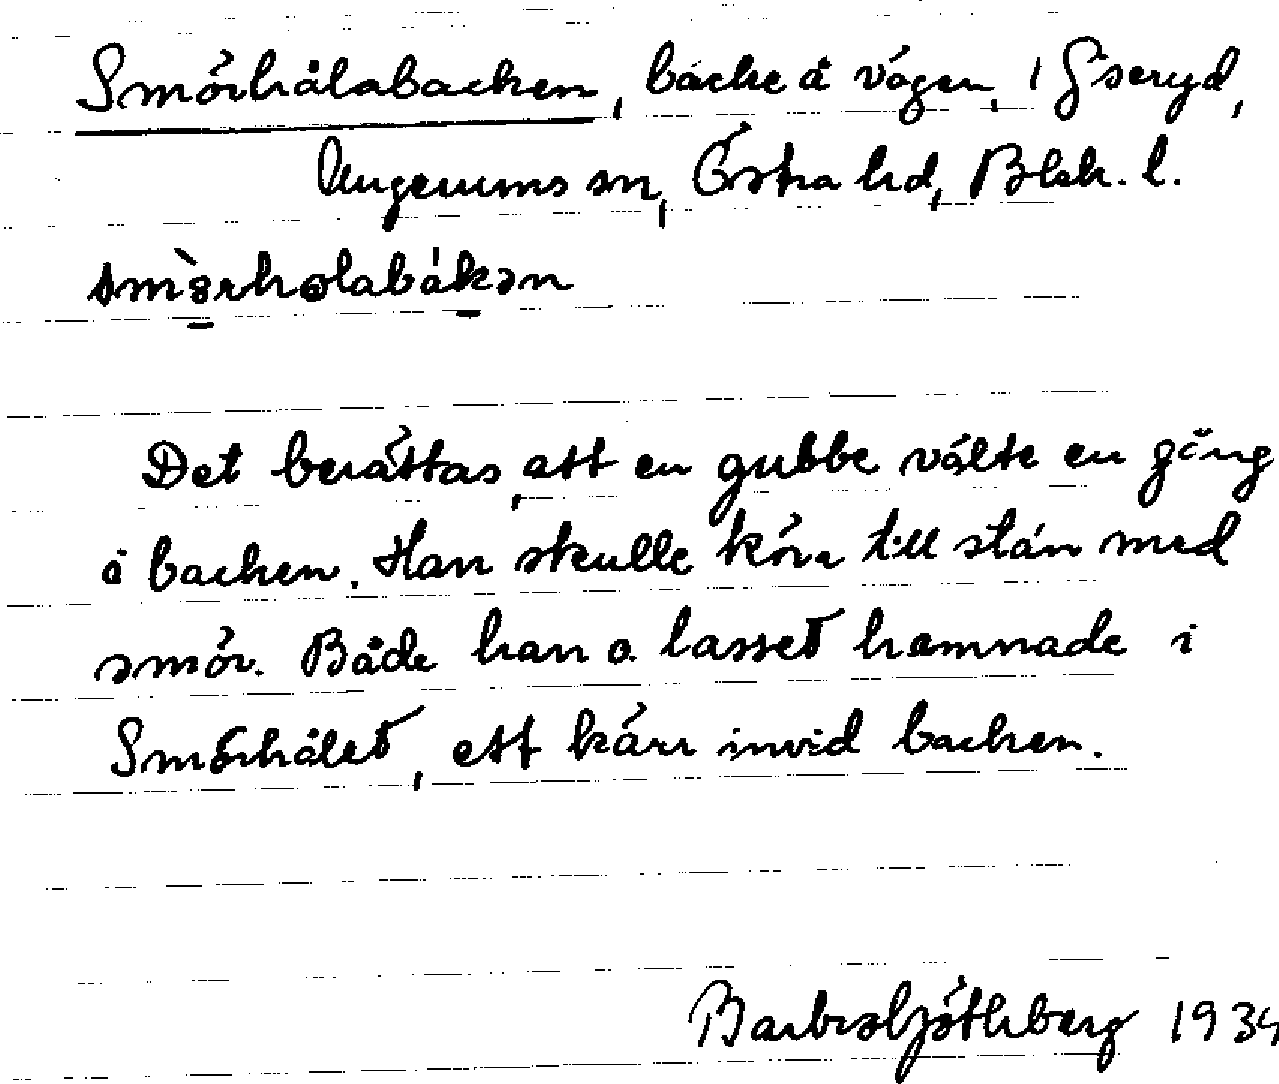 Smörhålabacken, backe å vägen, i Gåseryd,
Augerums sn, Östra hd, Blek. l.
smörhålabákən
Det berättas, att en gubbe välte en gång
å backen. Han skulle köra till stán med
smör. Både han o. lasset hamnade i
Smörhålet, ett kärr invid backen.
Barbro 1934